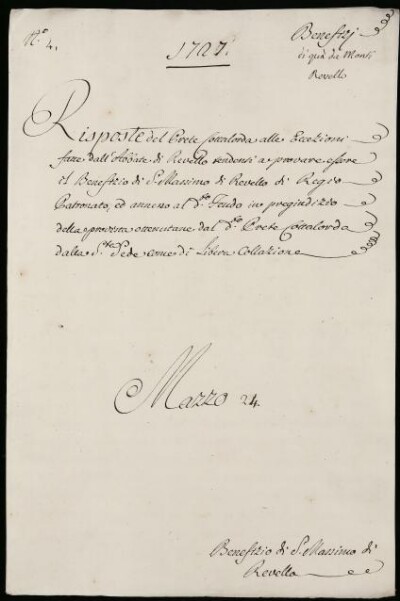 N.º 4.
1727.
Benefizj
di quà da Monti
Revello
Risposte del Prete Cottalorda alle Eccezioni
fatte dall'Abbate di Revello tendenti a provare essere
il Benefizio di S. Massimo di Revello di Regio
Patronato, ed annesso al d.to Feudo in pregiudizio
della provista ottenutane dal d.to Prete Cottalorda
dalla S.ta Sede come di Libera Collazione
Mazzo 24.
Benefizio di S. Massimo di
Revello